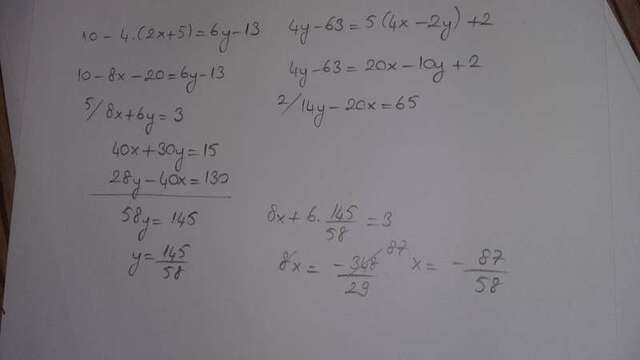 10-4.(2x+5)=6y-13
10-8x-20=6y-13
5/8x+6y=3
40x+30y=15
28y-40x=130
58y=145
y=145/58
4y-63=5(4x-2y)+2
4y-63=20x-10y+2
2/14y-20x=65
8x+6.145/58=3
8x=-348/29 87 x=-87/58